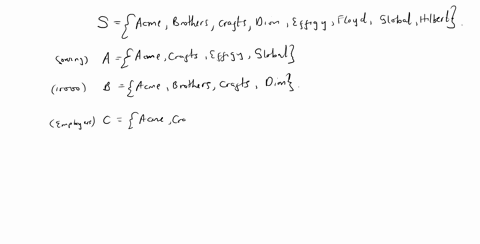 S = {Acme, Brothers, Crafts, Dim, Effigy, Floyd, Slobal, Hilbert}.
A = {Acme, Crafts, Effigy, Slobal}
(10000) B = {Acme, Brothers, Crafts, Dim}.
(Employees) C = {Acme, Cra